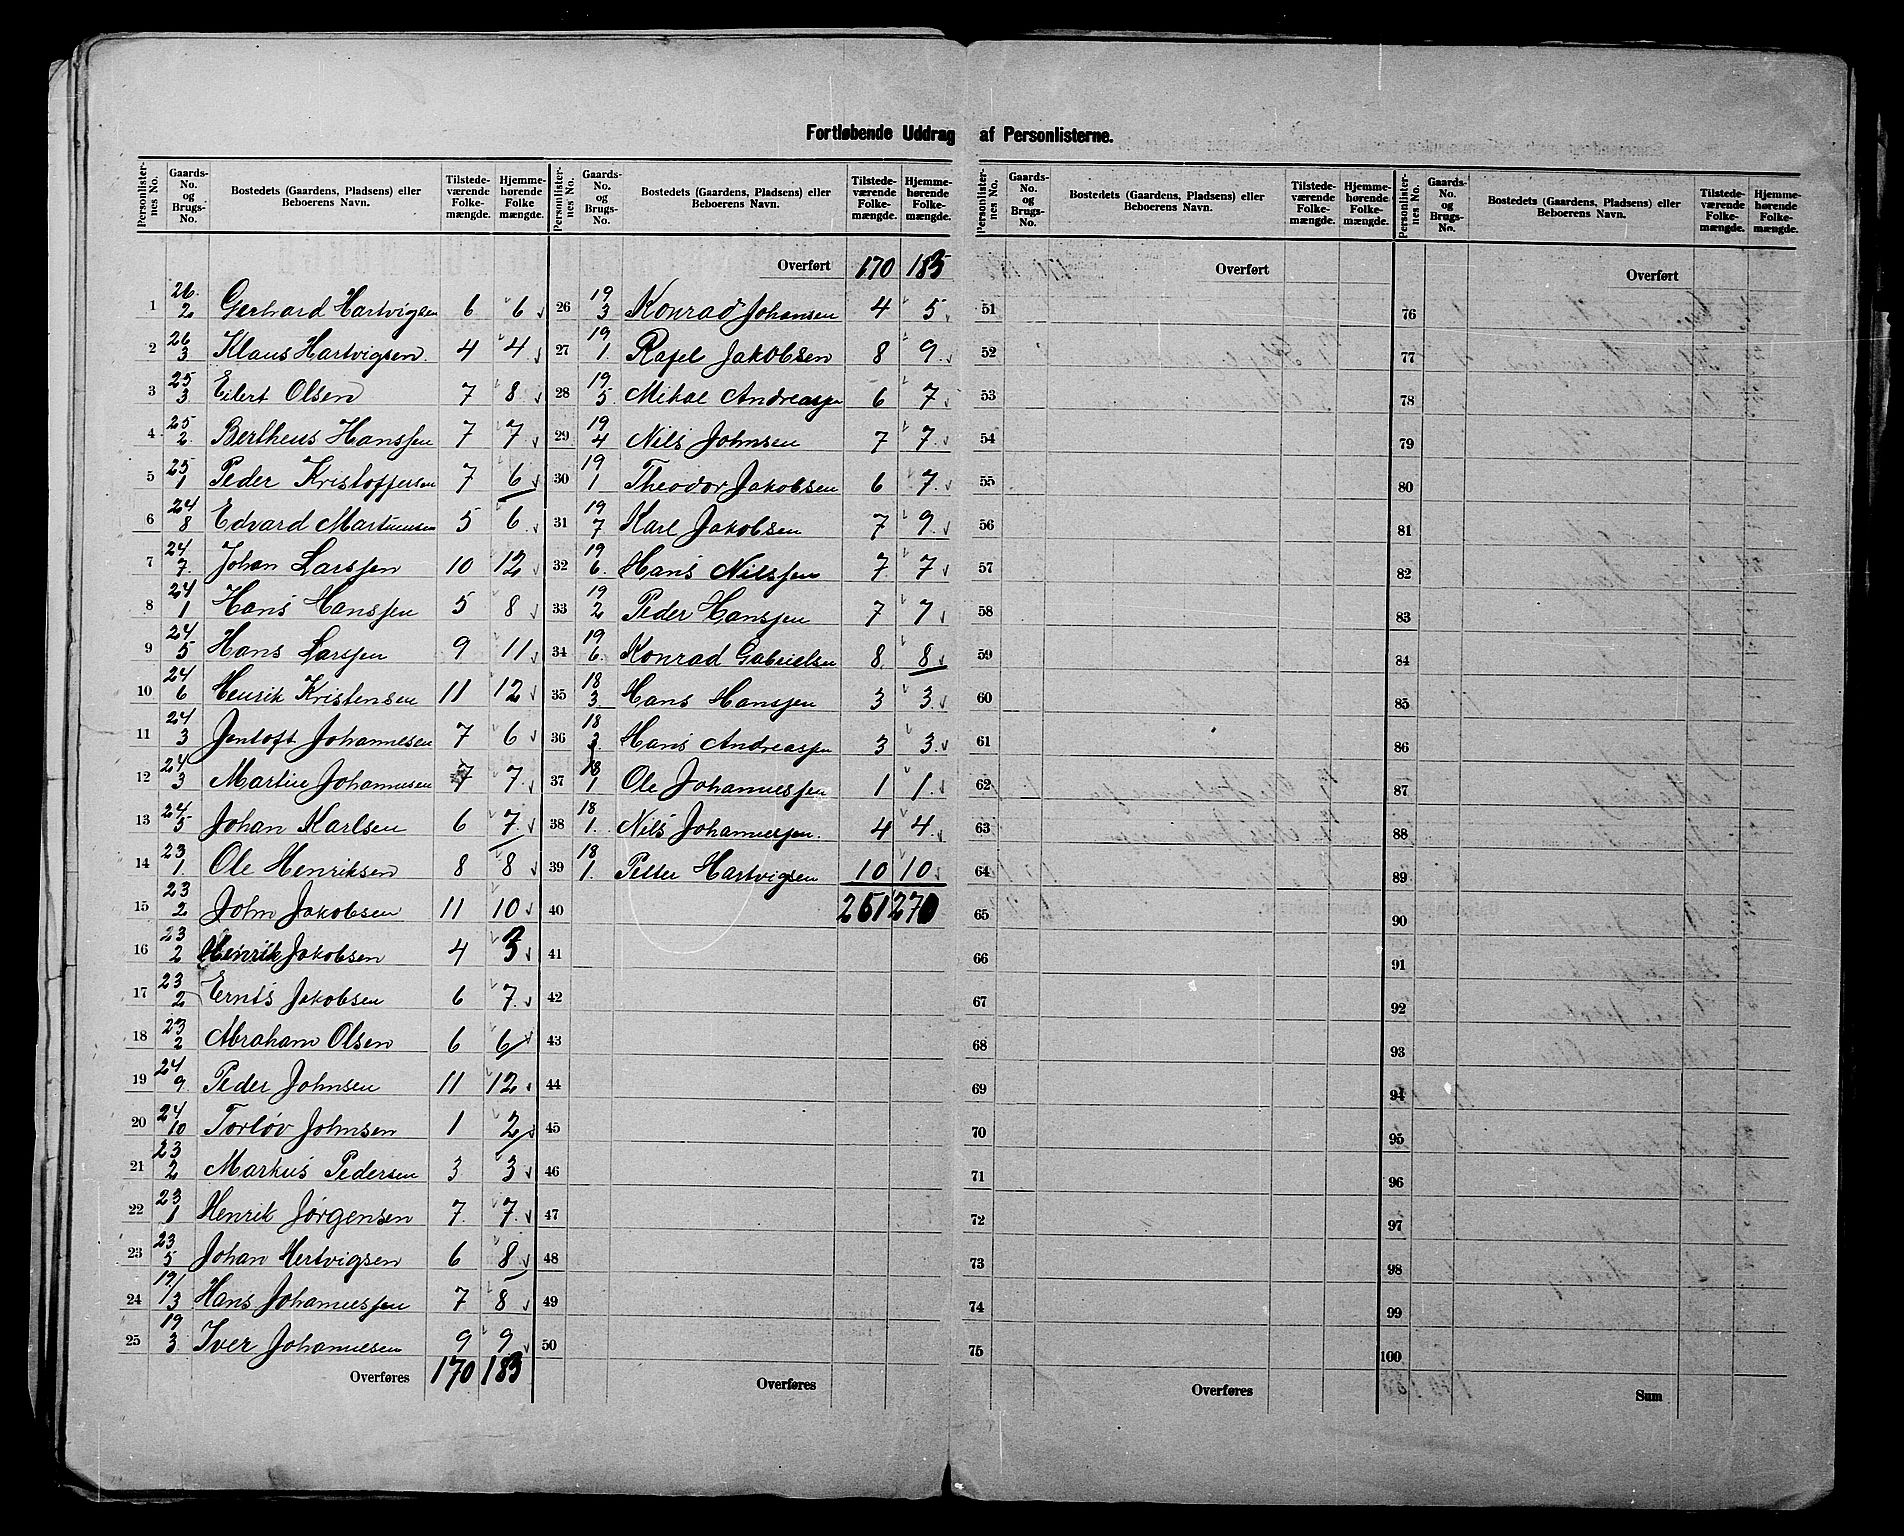 Fortløbende Uddrag af Personlisterne.
Personlister-nes No. Gaards-No. og Brugs-No. Bostedets (Gaardens, Pladsens) eller Beboerens Navn. Tilstede-værende Folke-mængde. Hjemme-hørende Folke mængde.
1 26/2 Gerhard Hartvigsen 6 6
2 26/3 Klaus Hartvigsen 4 4
3 25/3 Eilert Olsen 7 8
4 25/2 Bertheus Hanssen 7 7
5 25/1 Peder Kristoffersen 7 6
6 24/8 Edvard Martinusen 5 6
7 24/7 Johan Larssen 10 12
8 24/1 Hans Hanssen 5 8
9 24/5 Hans Larssen 9 11
10 24/6 Henrik Kristensen 11 12
11 24/3 Jentoft Johannesen 7 6
12 24/3 Martin Johannesen 7 7
13 24/5 Johan Karlsen 6 7
14 23/1 Ole Henriksen 8 8
15 23/2 John Jakobsen 11 10
16 23/2 Henrik Jakobsen 4 3
17 23/2 Ernts Jakobsen 6 7
18 23/2 Abraham Olsen 6 6
19 24/9 Peder Johnsen 11 12
20 24/10 Torløv Johnsen 1 2
21 23/2 Markus Pedersen 3 3
22 23/1 Henrik Jørgensen 7 7
23 23/5 Johan Hertvigsen 6 8
24 19/3 Hans Johannessen 7 8
25 19/3 Iver Johannesen 9 9
Overføres 170 183
Personlister-nes No. Gaards-No. og Brugs-No. Bostedets (Gaardens, Pladsens) eller Beboerens Navn. Tilstede-værende Folke-mængde. Hjemme-hørende Folke-mængde.
Overført 170 183
26 19/3 Konrad Johansen 4 5
27 19/1 Rafel Jakobsen 8 9
28 19/5 Mikal Andreassen 6 7
29 19/4 Nils Johnsen 7 7
30 19/1 Theodor Jakobsen 6 7
31 19/7 Karl Jakobsen 7 9
32 19/6 Hans Nilssen 7 7
33 19/2 Peder Hanssen 7 7
34 19/6 Konrad Gabrielsen 8 8
35 18/3 Hans Hanssen 3 3
36 18/3 Hans Andreassen 3 3
37 18/1 Ole Johannessen 1 1
38 18/1 Nils Johannessen 4 4
39 18/1 Petter Hartvigsen 10 10
40 251 270
41
42
43
44
45
46
47
48
49
50
Overføres
Personlister-nes No. Gaards-No. og Brugs-No. Bostedets (Gaardens, Pladsens) eller Beboerens Navn. Tilstede-værende Folke-mængde. Hjemme-hørende Folke-mængde.
Overført
51
52
53
54
55
56
57
58
59
60
61
62
63
64
65
66
67
68
69
70
71
72
73
74
75
Overføres
Personlister-nes No. Gaards-No. og Brugs-No. Bostedets (Gaardens, Pladsens) eller Beboerens Navn. Tilstede-værende Folke-mængde. Hjemme-hørende Folke-mængde.
Overført
76
77
78
79
80
81
82
83
84
85
86
87
88
89
90
91
92
93
94
95
96
97
98
99
100
Sum